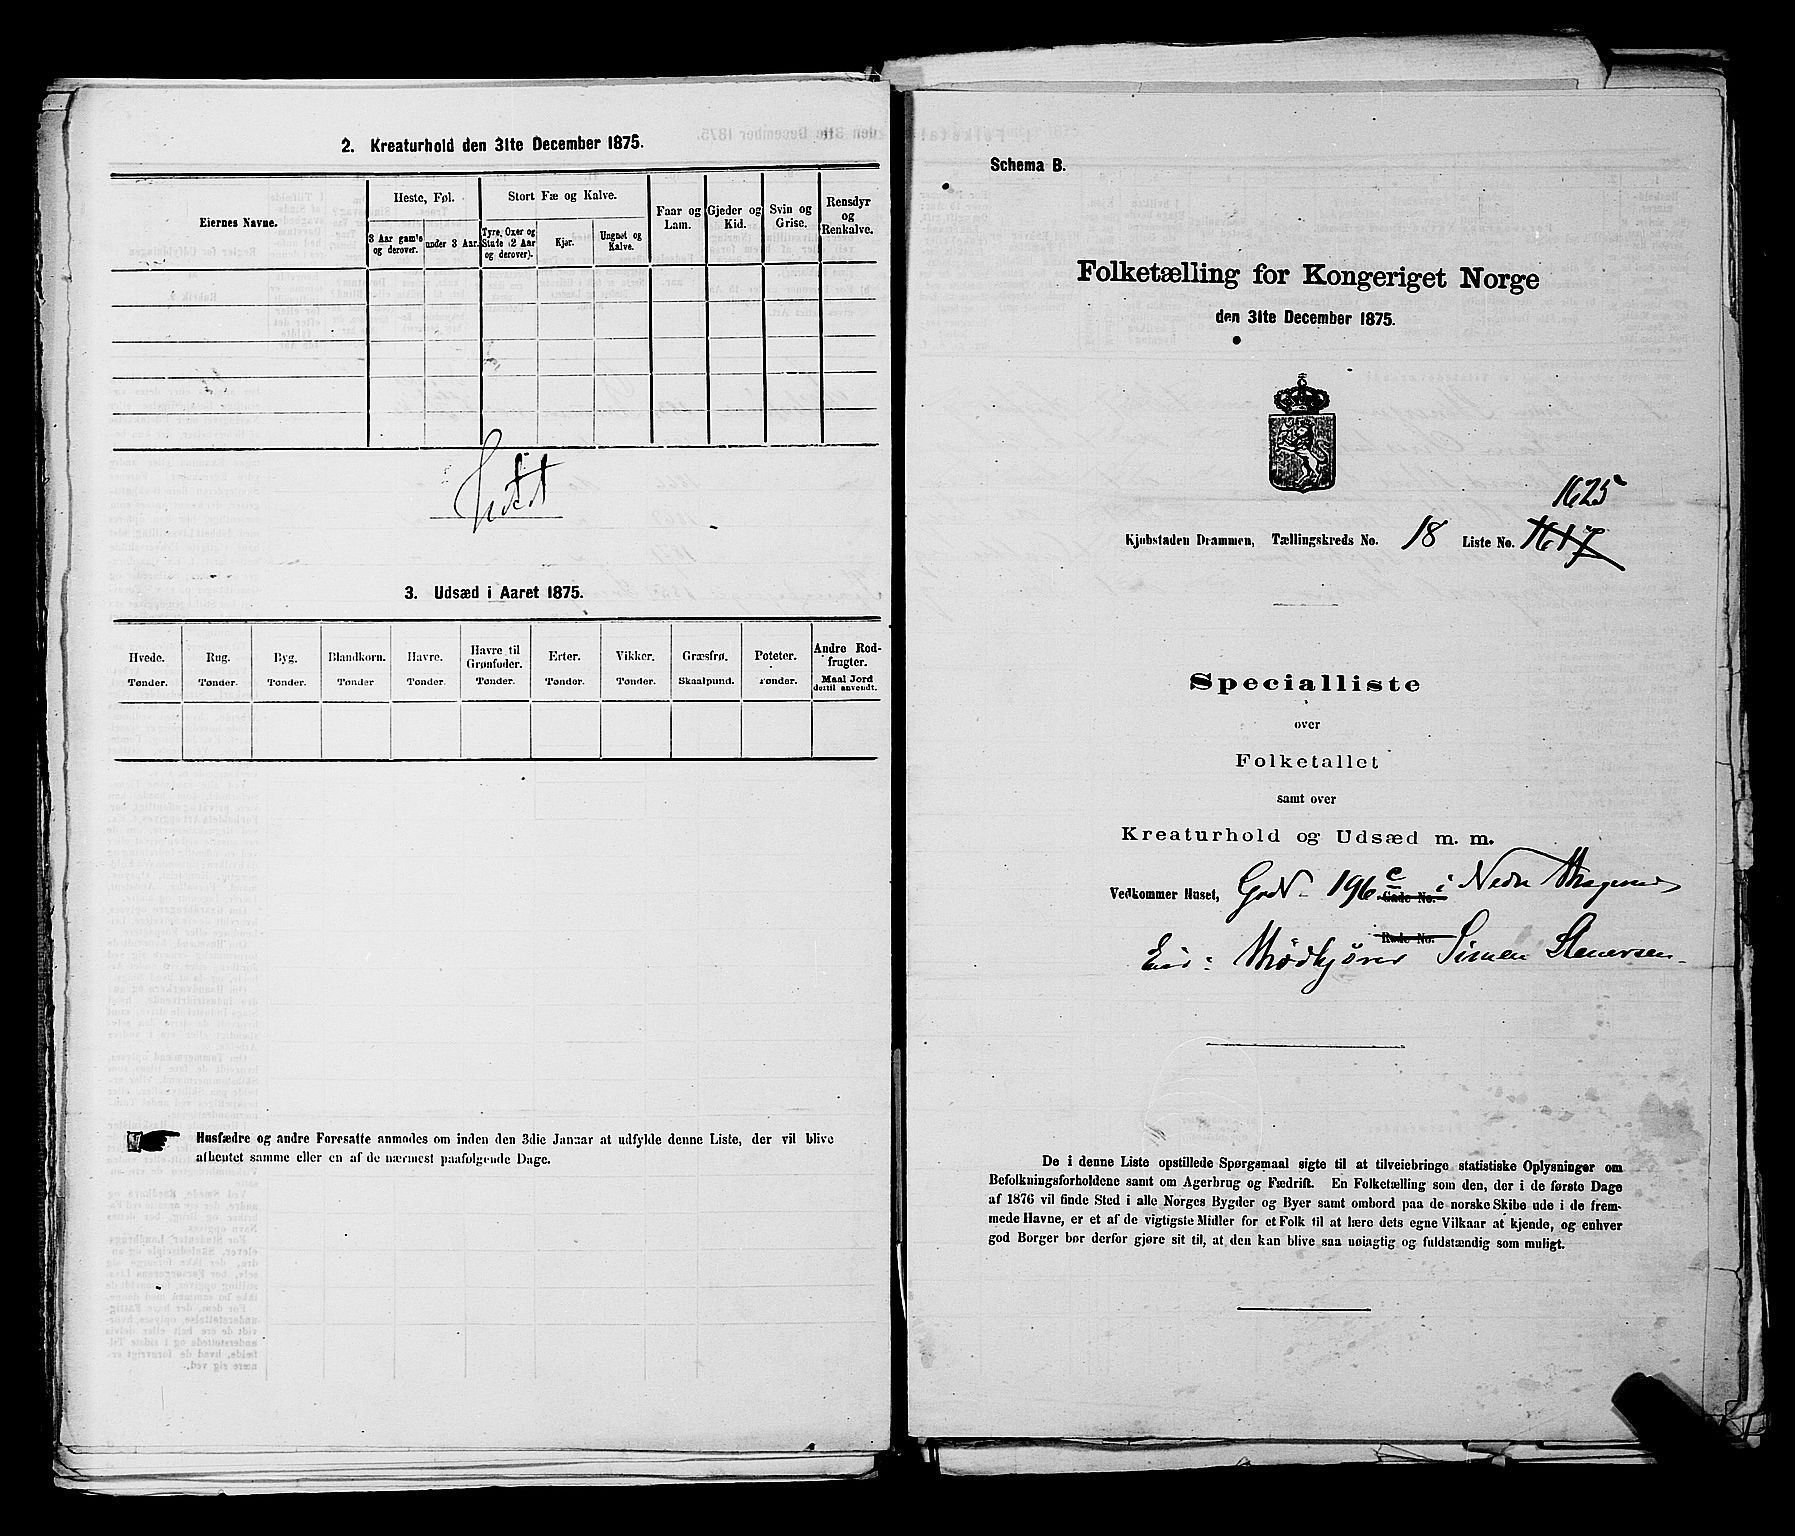 2. Kreaturhold den 31te December 1875.
Eiernes Navne.
Heste, Føl.
Stort Fæ og Kalve.
Faar og Lam.
Gjeder og Kid.
Svin og Grise.
Rensdyr og Renkalve.
3 Aar gamle og derover.
under 3 Aar.
Tyre, Oxer og Stude (2 Aar og derover).
Kjør.
Ungnøt og Kalve.
3. Udsæd i Aaret 1875.
Hvede. Rug. Byg. Blandkorn. Havre. Havre til Grønfoder. Erter. Vikker. Græsfrø. Poteter. Andre Rodfrugter.
Tønder. Tønder. Tønder. Tønder Tønder. Tønder. Tønder. Tønder. Skaalpund. Tønder. Maal Jord dertil anvendt.
Husfædre og andre Foresatte anmodes om inden den 3die Januar at udfylde denne Liste, der vil blive
afhentet samme eller en af de nærmest paafølgende Dage.
Schema B.
Folketælling for Kongeriget Norge
den 31te December 1875.
1625
Kjøbstaden Drammen, Tællingskreds No. 18 Liste No. 1617
Specialliste
over
Folketallet
samt over
Kreaturhold og Udsæd m. m.
Vedkommer Huset, 196 c Gade No. i Nedre
Rode No.
Simen Stenersen
De i denne Liste opstillede Spørgsmaal sigte til at tilveiebringe statistiske Oplysninger om
Befolkningsforholdene samt om Agerbrug og Fædrift. En Folketælling som den, der i de første Dage
af 1876 vil finde Sted i alle Norges Bygder og Byer samt ombord paa de norske Skibe ude i de frem-
mede Havne, er et af de vigtigste Midler for et Folk til at lære dets egne Vilkaar at kjende, og enhver
god Borger bør derfor gjøre sit til, at den kan blive saa nøiagtig og fuldstændig som muligt.